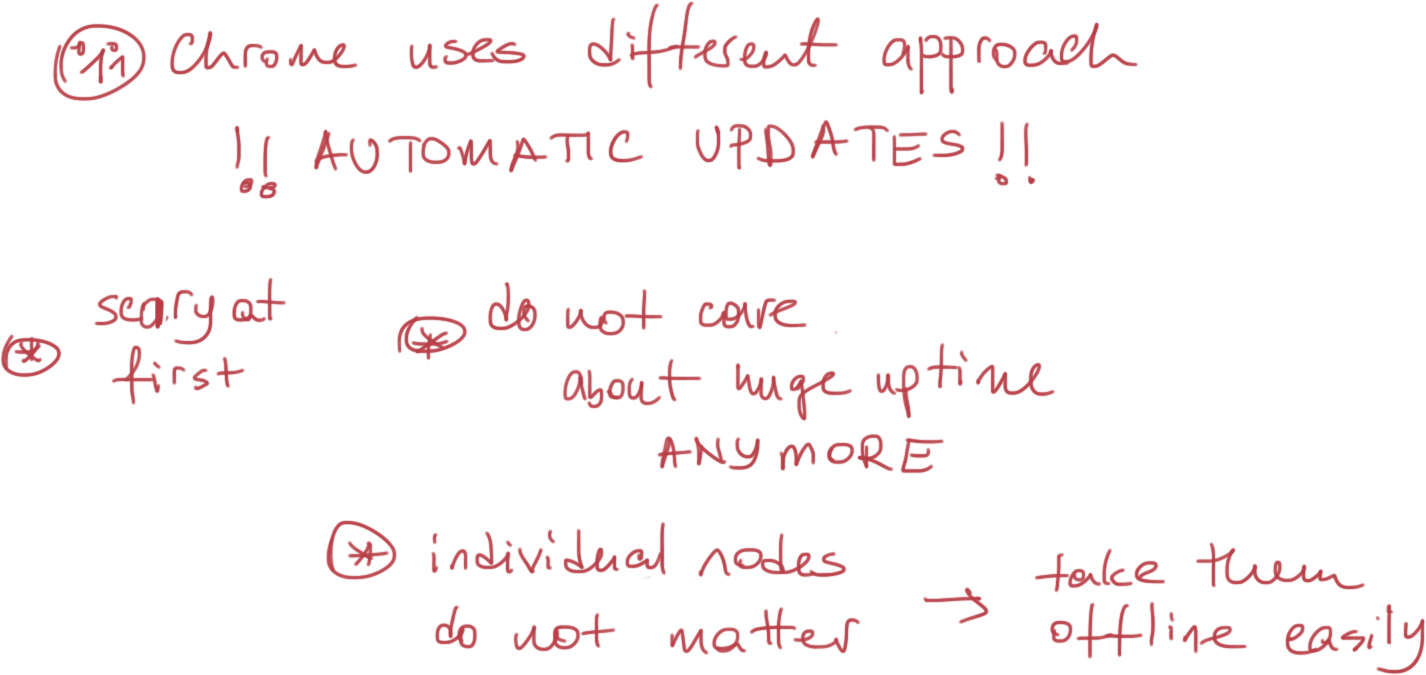 11 Chrome uses different approach
!! AUTOMATIC UPDATES !!
scary at
first
* do not care
about huge uptime
ANYMORE
* individual nodes
do not matter
→ take them
offline easily